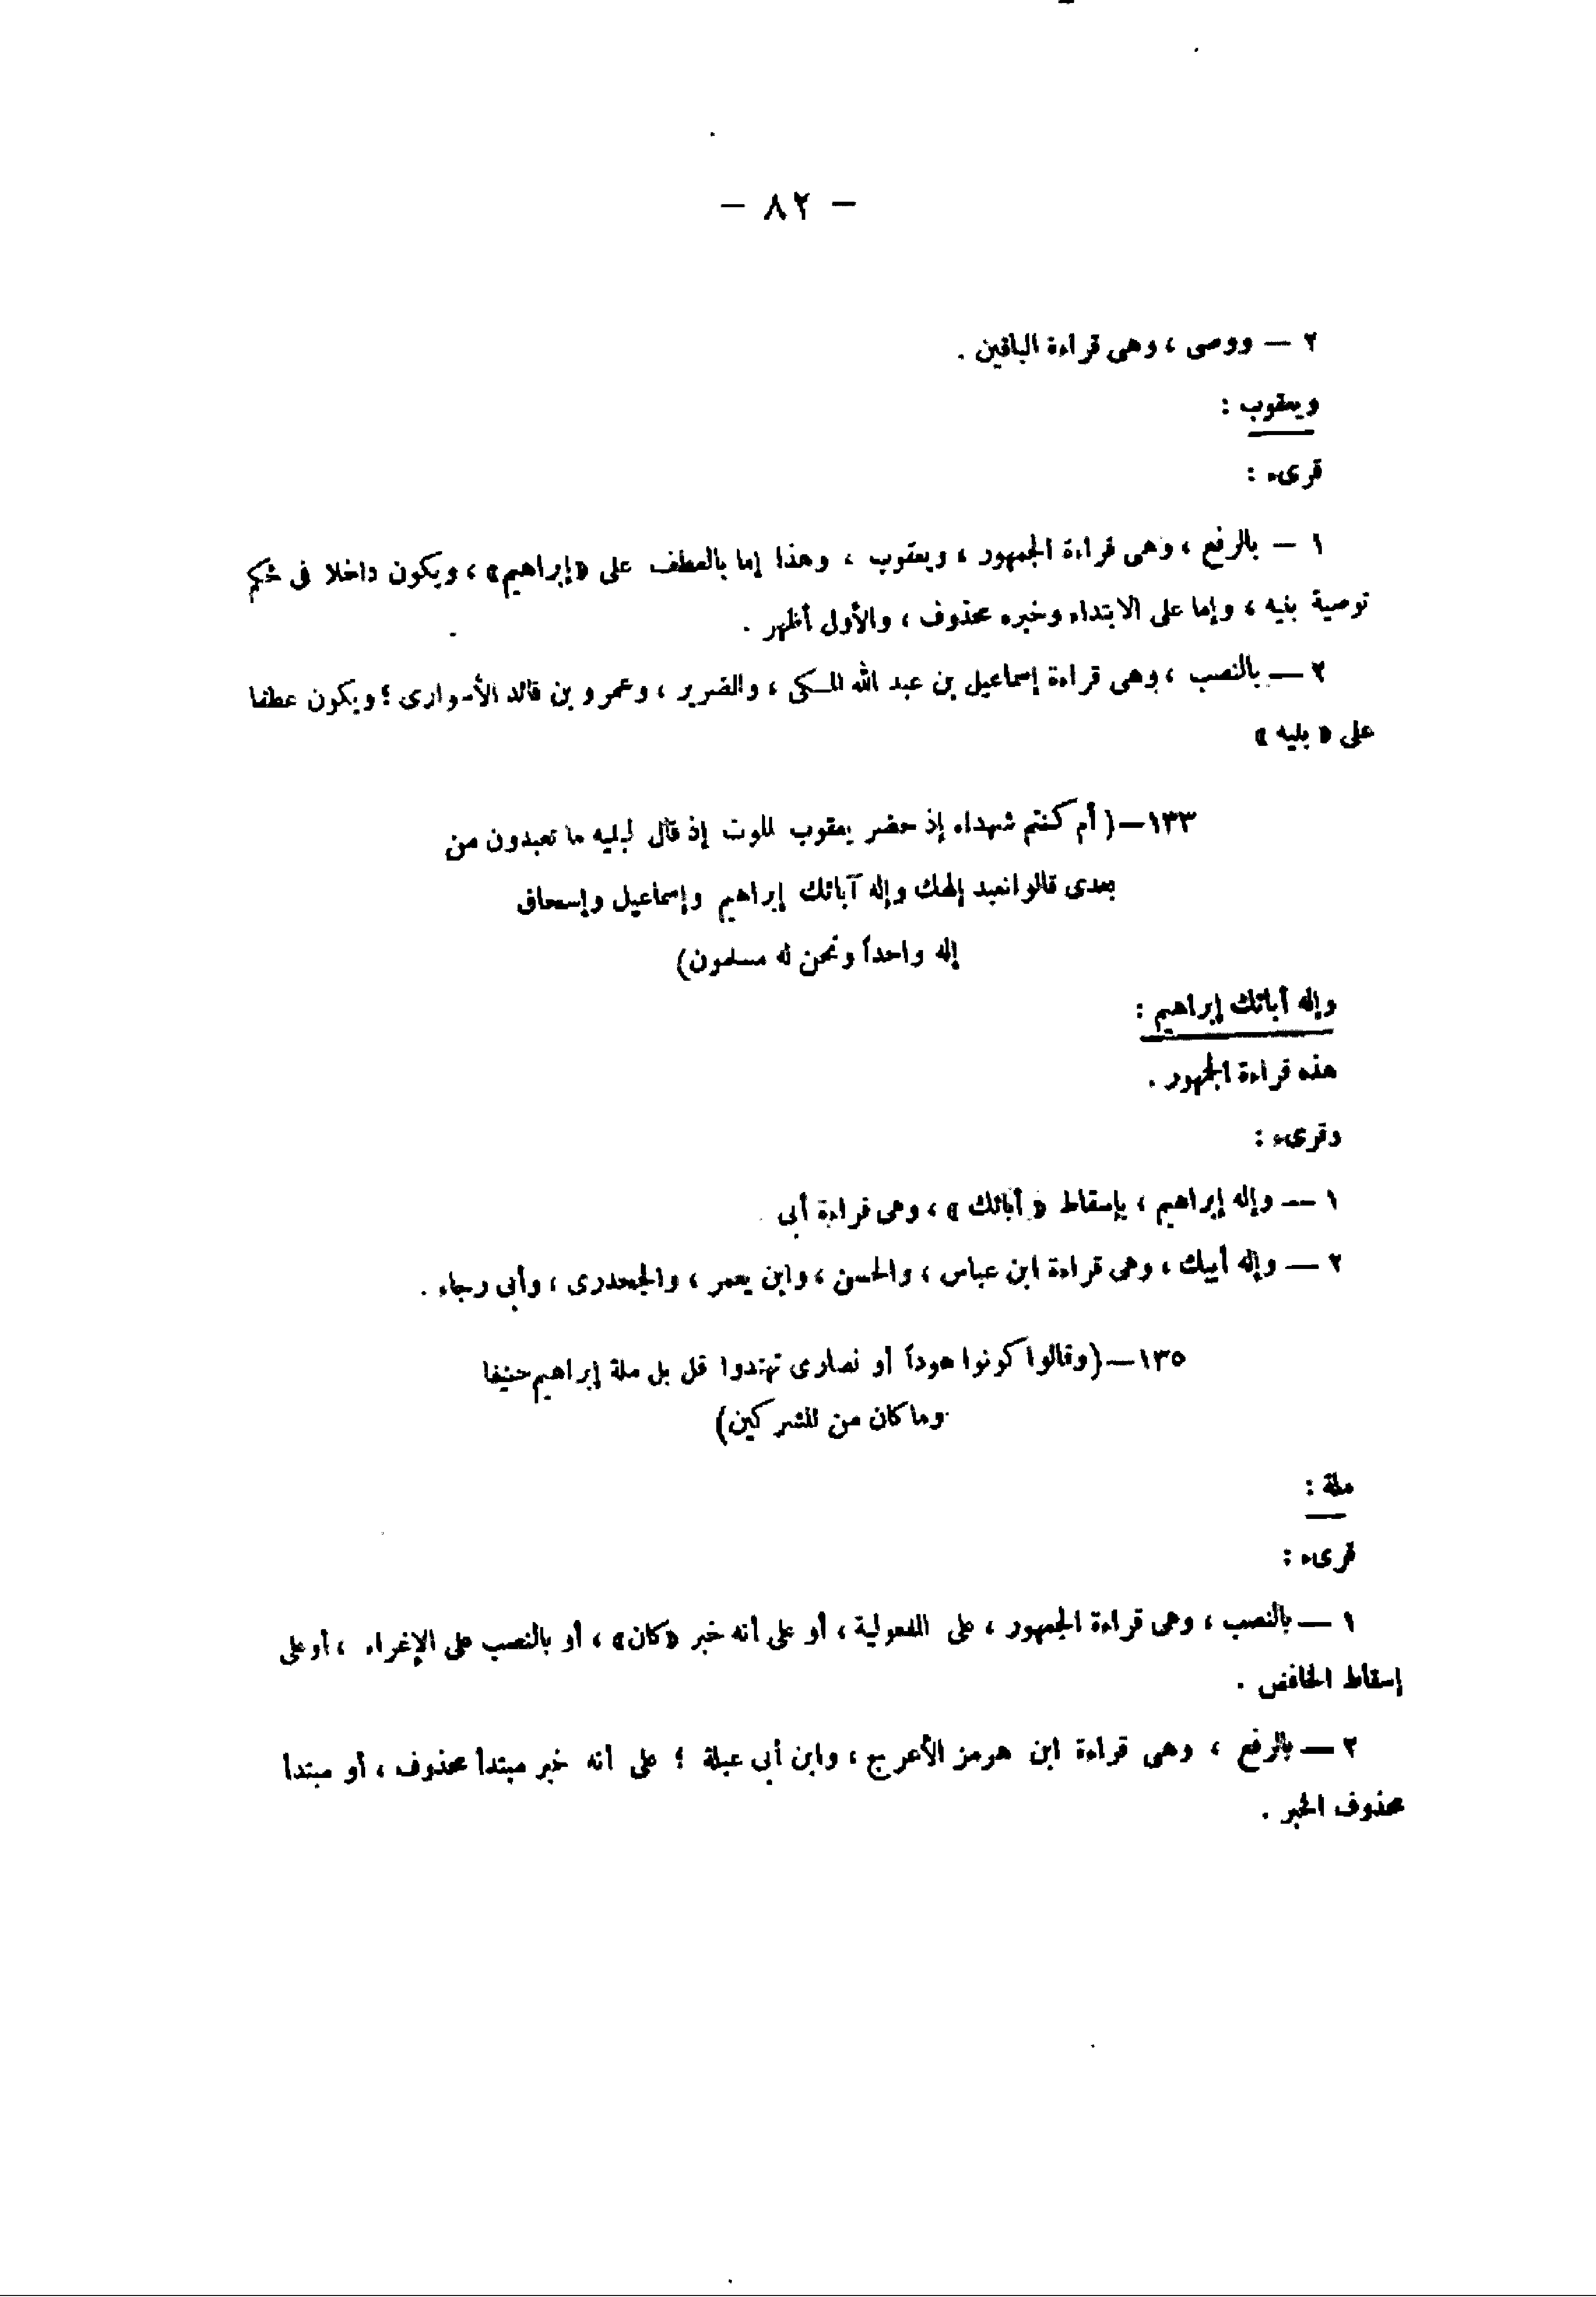 — ٨٢ —
٢ — ووصى ، وهى قراءة الباقين .
ويعقوب :
قرىء :
١ — بالرفع ، وهى قراءة الجمهور ، ويعقوب ، وهذا إما بالعطف على «إبراهيم» ، ويكون داخلا فى حكم
توصية بنيه ، وإما على الابتداء وخبره محذوف ، والأول أظهر .
٢ — بالنصب ، وهى قراءة إسماعيل بن عبد الله المكى ، والضرير ، وعمرو بن قائد الأسوارى ؛ ويكون عطفا
على « بنيه »
١٣٣—( أم كنتم شهداء إذ حضر يعقوب الموت إذ قال لبنيه ما تعبدون من
بعدى قالوا نعبد إلهك وإله آبائك إبراهيم وإسماعيل وإسحاق
إله واحداً ونحن له مسلمون)
وإله أبائك إبراهيم :
هذه قراءة الجمهور .
وقرىء :
١ — وإله إبراهيم ، بإسقاط « أبائك » ، وهى قراءة أبى
٢ — وإله أبيك ، وهى قراءة ابن عباس ، والحسن ، وابن يعمر ، والجحدرى ، وأبى رجاء .
١٣٥—(وقالوا كونوا هوداً أو نصارى تهتدوا قل بل ملة إبراهيم حنيفا
وما كان من المشركين)
ملة :
قرىء :
١ — بالنصب ، وهى قراءة الجمهور ، على المفعولية ، أو على أنه خبر «كان» ، أو بالنصب على الإغراء ، أو على
إسقاط الخافض .
٢ — بالرفع ، وهى قراءة ابن هرمز الأعرج ، وابن أبى عبلة ؛ على أنه خبر مبتدأ محذوف ، أو مبتدأ
محذوف الخبر .